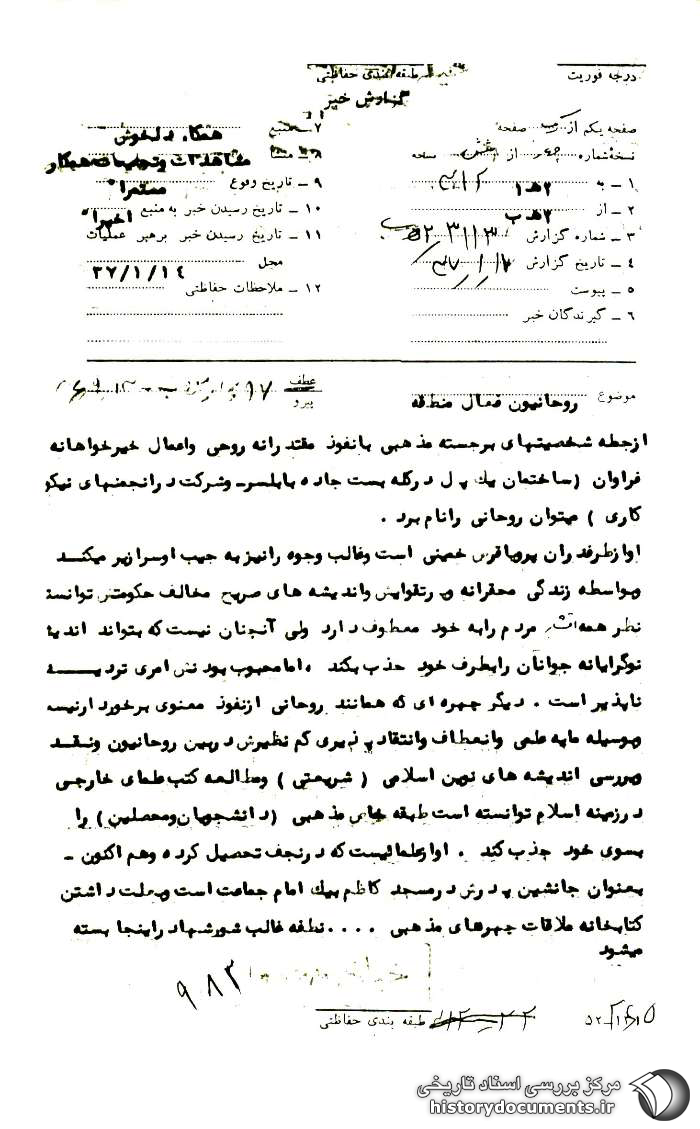 درجه فوریت
طبقه بندی حفاظتی
گزارش خبر
صفحه یکم از صفحه
نسخه شماره از نسخه
۱ - به ۲ هـ ۱
۲ - از ۲ هـ ب
۳ - شماره گزارش
۴ - تاریخ گزارش
۵ - پیوست
۶ - گیرندگان خبر
۷ - منبع همکار دلخوش
۸ - منشا مشاهدات و تجربیات همکار
۹ - تاریخ وقوع مستمرا"
۱۰ - تاریخ رسیدن خبر به منبع اخیرا"
۱۱ - تاریخ رسیدن خبر برهبر عملیات
محل ۳۷/۱/۱۴
۱۲ - ملاحظات حفاظتی
موضوع روحانیون فعال منطقه
عطف
پیرو
ازجمله شخصیتهای برجسته مذهبی بانفوذ مقتدرانه روحی واعمال خیرخواهانه
فراوان (ساختمان یك پل درکله بست جاده بابلسر وشرکت درانجمنهای نیکو
کاری ) میتوان روحانی رانام برد .
اوازطرفداران خمینی است وغالب وجوه رانیزبه جیب اوسرازیر میکند
وبواسطه زندگی محقرانه و تقوایش واندیشه های صریح مخالف حکومتش توانسته
نظر همه مردم رابه خود معطوف دارد ولی آنچنان نیست که بتواند اندیشه
نوگرایانه جوانان رابطرف خود جذب بکند ، امامحبوب بودنش امری تردید
ناپذیر است . دیگر چهره ای که همانند روحانی ازنفوذ معنوی برخوردارنیست
بوسیله مایه علمی وانعطاف وانتقاد پذیری کم نظیرش دربین روحانیون ونقد
وبررسی اندیشه های نوین اسلامی ( شریعتی ) ومطالعه کتب علمای خارجی
درزمینه اسلام توانسته است طبقه مذهبی (دانشجویان ومحصلین ) را
بسوی خود جذب کند . اوازعلمائیست که درنجف تحصیل کرده وهم اکنون -
بعنوان جانشین پدرش درمسجد کاظم بیك امام جماعت است وبعلت داشتن
کتابخانه ملاقات چهرهای مذهبی .... نطفه غالب شورشهادراینجا بسته
میشود
۹۸۳
طبقه بندی حفاظتی
مرکز بررسی اسناد تاریخی
historydocuments.ir